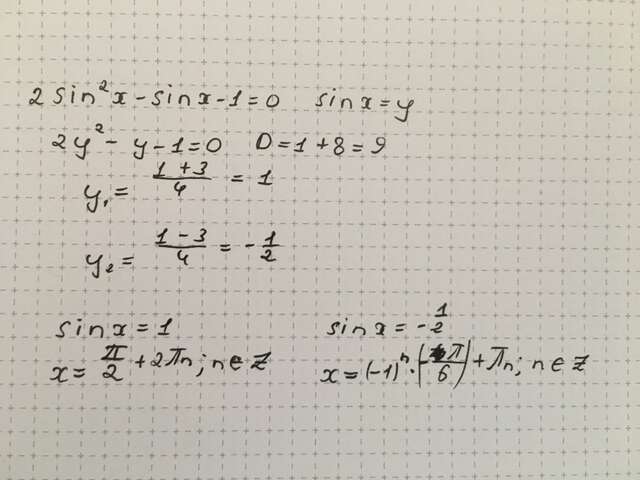 2 sin²x - sinx - 1 = 0 sinx = y
2y² - y - 1 = 0 D = 1 + 8 = 9
y₁ = (1 + 3)/4 = 1
y₂ = (1 - 3)/4 = -1/2
sinx = 1 sinx = -1/2
x = π/2 + 2πn; n∈Z x = (-1)ⁿ · (-π/6) + πn; n∈Z